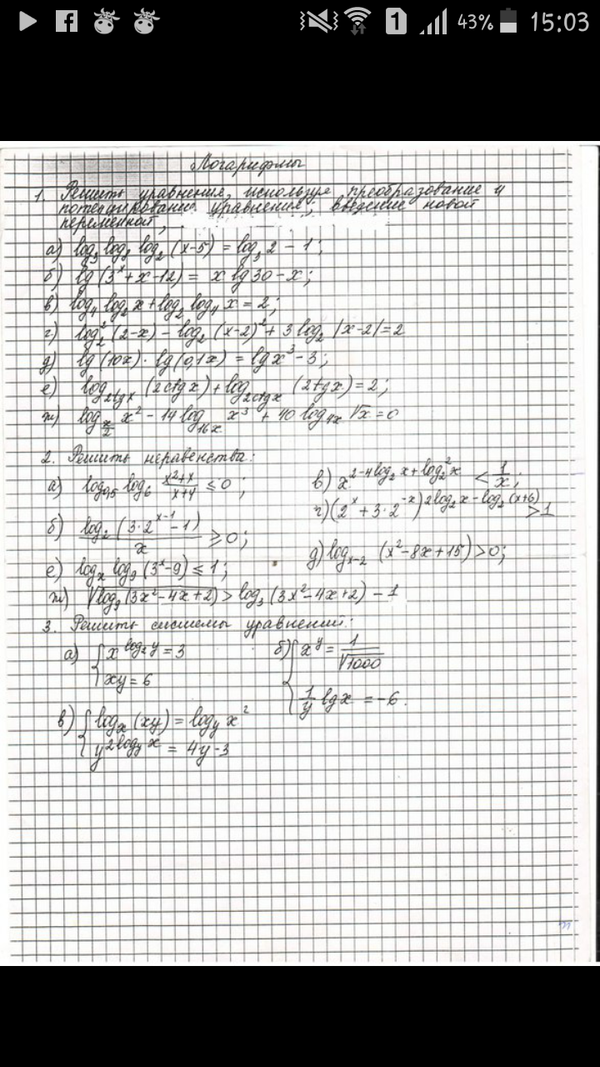 43% 15:03
Логарифмы
1. Решить уравнения, используя преобразование и
потенцирование уравнения, введение новой
переменной,
а) log₃ log₈ log₂ (x-5) = log₃ 2 - 1;
б) lg (3ˣ + x - 12) = x lg 30 - x;
в) log₄ log₂ x + log₂ log₄ x = 2;
г) log₂² (2-x) - log₂ (x-2)² + 3 log₂ |x-2| = 2
д) lg (10x) · lg (0,1x) = lg x³ - 3;
е) log₂tgx (2ctgx) + log₂ctgx (2tgx) = 2;
ж) log_{x/2} x² - 14 log₁₆ₓ x³ + 40 log₄ₓ √x = 0
2. Решить неравенства:
а) log₀,₅ log₆ (x²+x)/(x+4) ≤ 0;
в) x^{2-4log₂x+log₂²x} < 1/x;
г) (2ˣ + 3·2⁻ˣ)^{2log₂x-log₂(x+6)} > 1
б) log₂ (3·2ˣ⁻¹ - 1)/x ≥ 0;
д) logₓ₋₂ (x² - 8x + 15) > 0;
е) logₓ log₉ (3ˣ - 9) ≤ 1;
ж) √log₉ (3x² - 4x + 2) > log₃ (3x² - 4x + 2) - 1
3. Решить системы уравнений:
а) { x^{log₂y} = 3
xy = 6
б) { x^y = 1/√1000
1/y lg x = -6.
в) { logₓ (xy) = log_y x²
y^{2log_y x} = 4y - 3